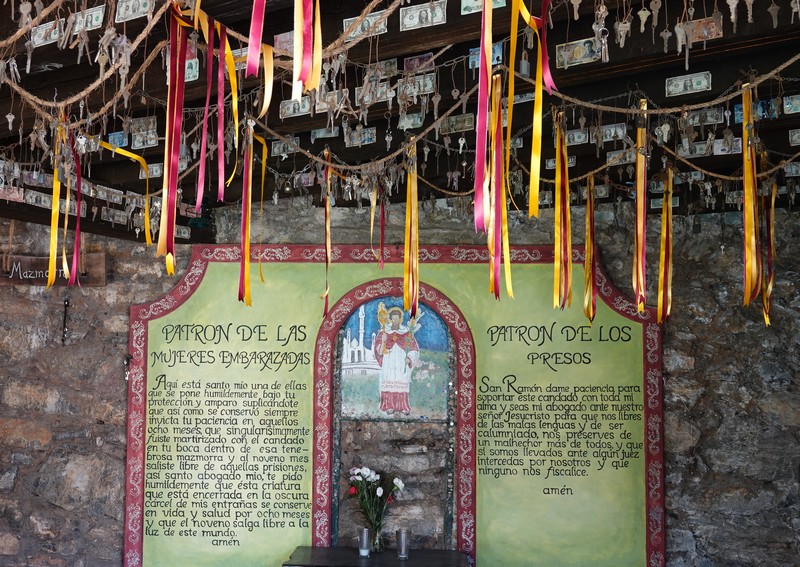 Mazmorra
PATRON DE LAS
MUJERES EMBARAZADAS
Aquí está santo mio una de ellas
que se pone humildemente bajo tu
protección y amparo suplicandote
que asi como se conservo siempre
invicta tu paciencia en aquellos
ocho meses que singularisimamente
fuiste martirizado con el candado
en tu boca dentro de esa tene-
brosa mazmorra y al noveno mes
saliste libre de aquellas prisiones,
así santo abogado mio, te pido
humildemente que esta criatura
que está encerrada en la oscura
cárcel de mis entrañas se conserve
en vida y salud por ocho meses
y que el noveno salga libre a la
luz de este mundo.
amén
PATRON DE LOS
PRESOS
San Ramón dame paciencia para
soportar este candado con toda mi
alma y seas mi abogado ante nuestro
señor Jesucristo para que nos libres
de las malas lenguas y de ser
calumniado, nos preserves de
un malhechor más de todos, y que
si somos llevados ante algún juez
intercedas por nosotros y que
ninguno nos fiscalice.
amén